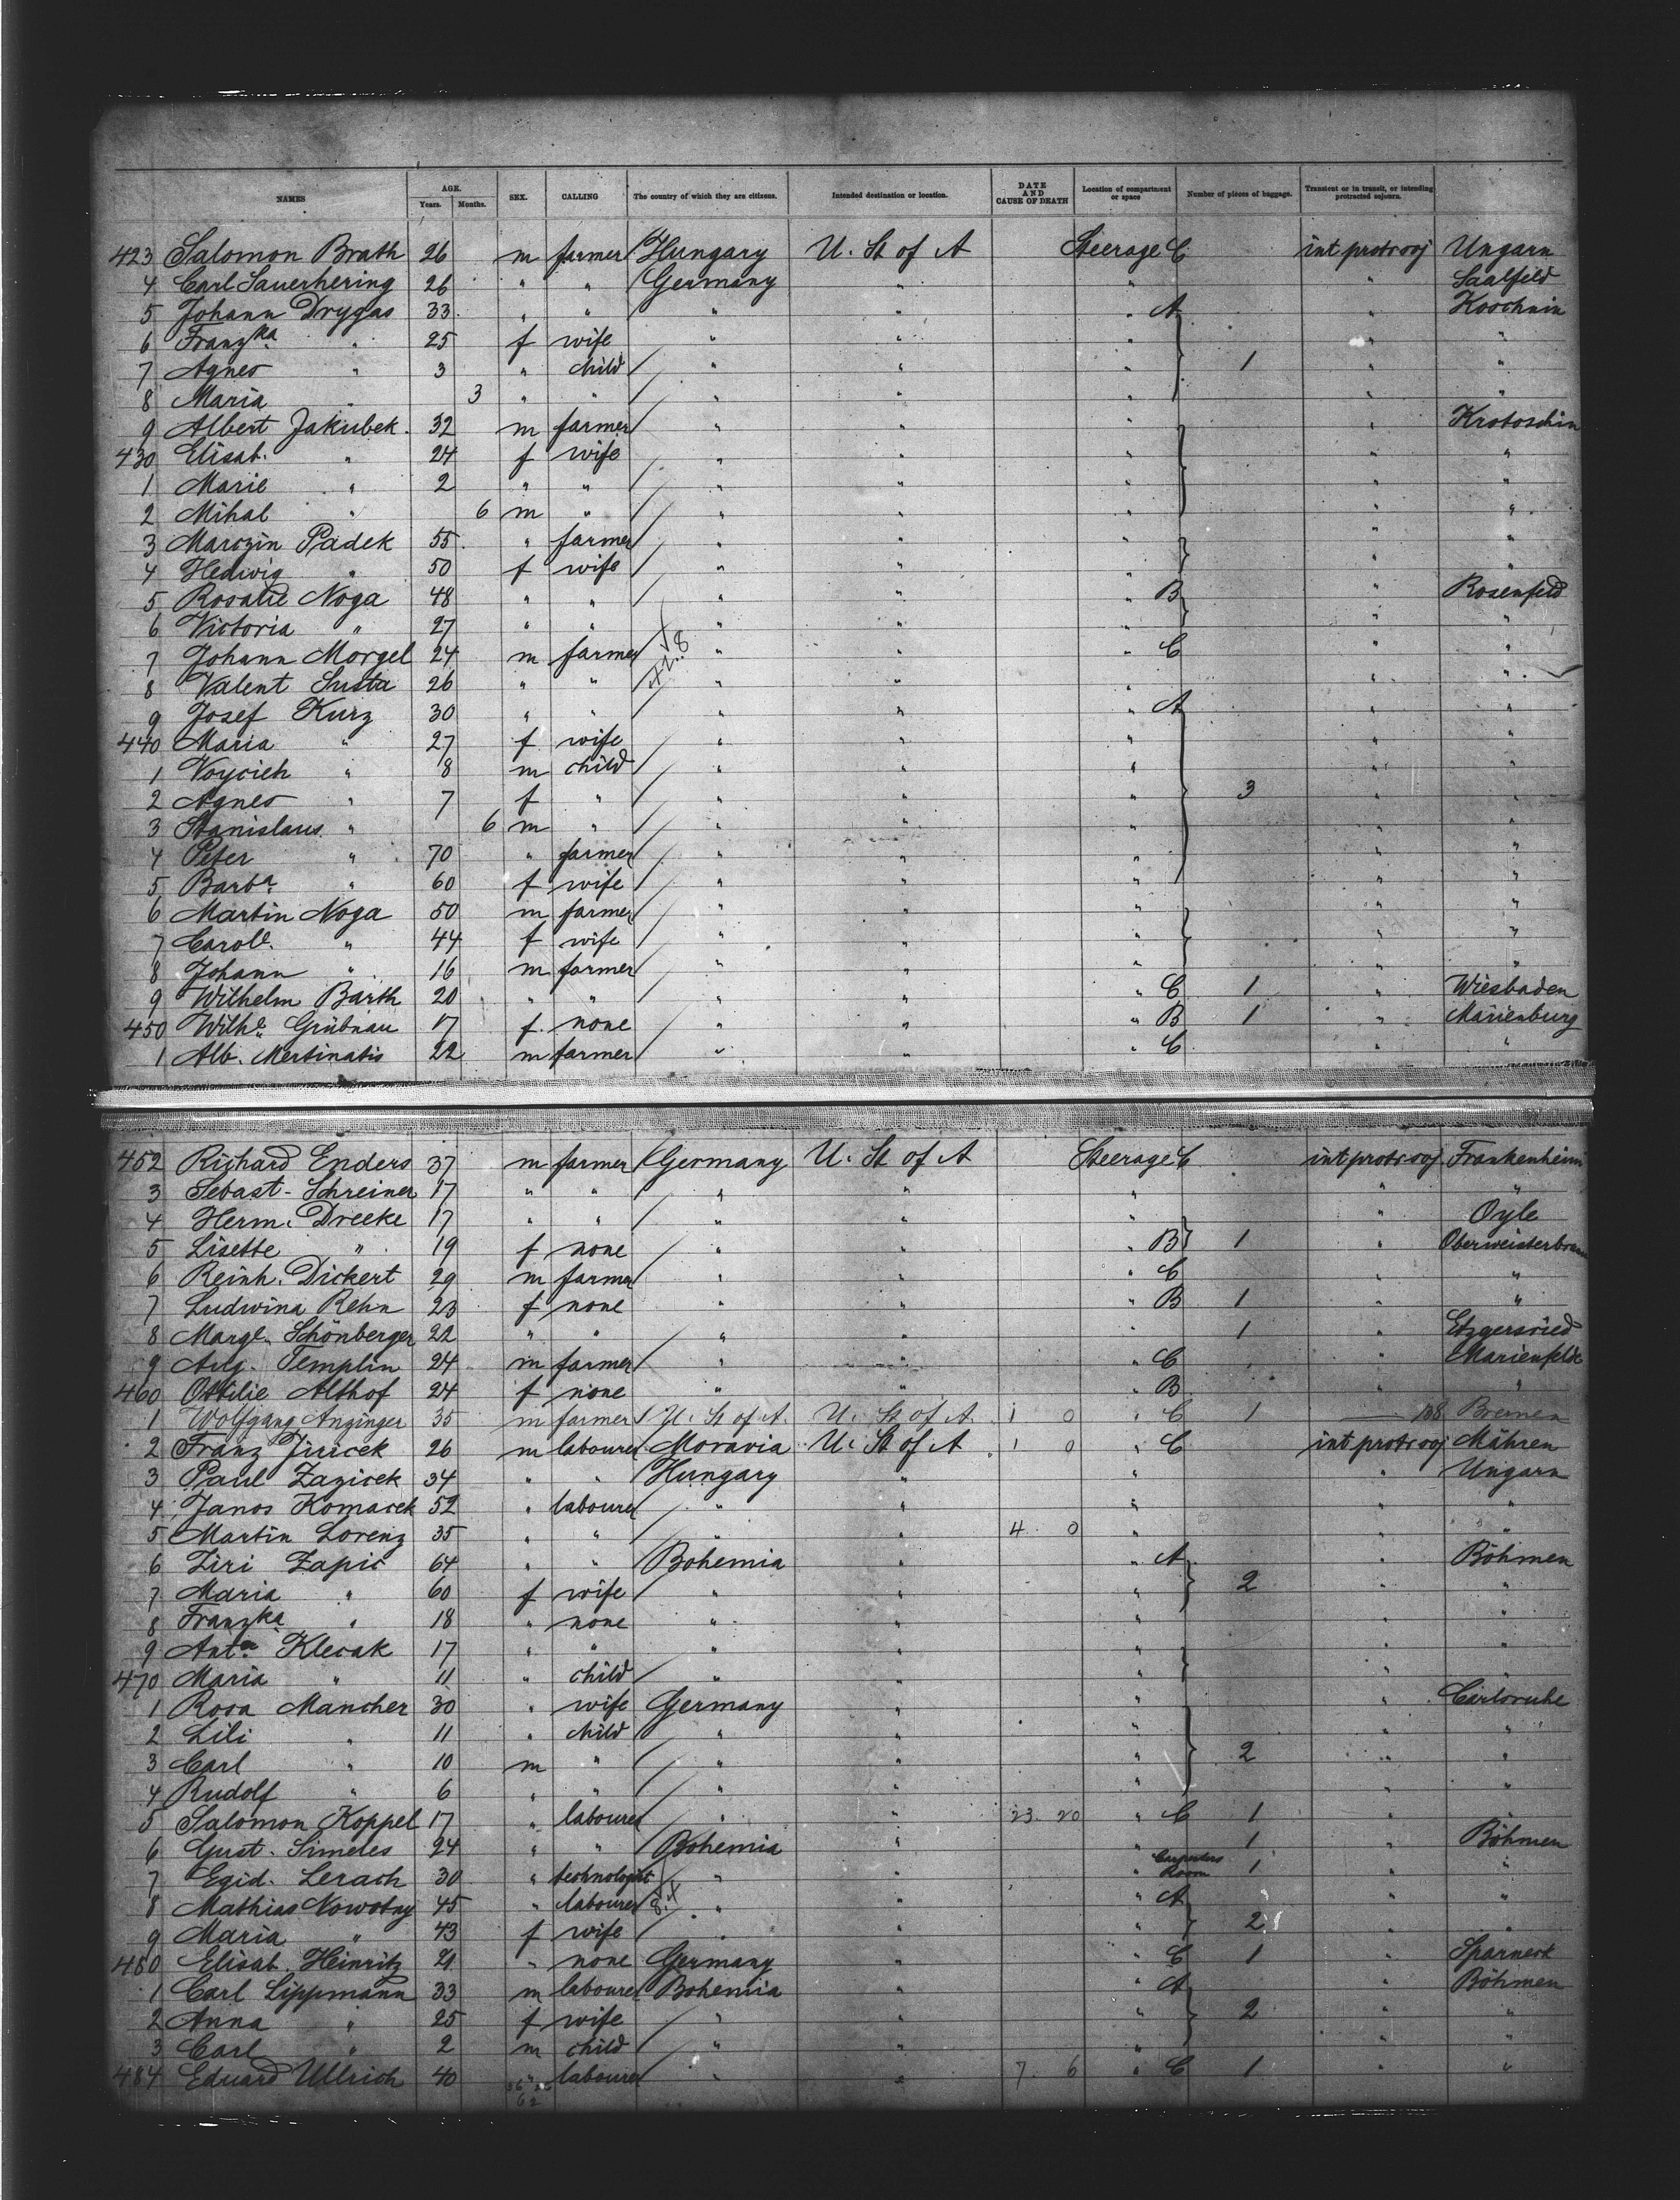 NAMES AGE. Years. Months. SEX. CALLING The country of which they are citizens. Intended destination or location. DATE AND CAUSE OF DEATH Location of compartment or space Number of pieces of baggage. Transient or in transit, or intending protracted sojourn.
423 Salomon Brath 26 m farmer Hungary U. St of A Steerage C int protr soj Ungarn
4 Carl Sauerhering 26 " " Germany " " " Saalfeld
5 Johann Drygas 33 " " " " " A " Koschmin
6 Franzka " 25 f wife " " " " "
7 Agnes " 3 " child " " " 1 " "
8 Maria " 3 " " " " " " "
9 Albert Jakubek 32 m farmer " " " " Krotoschin
430 Elisab. " 24 f wife " " " " "
1 Marie " 2 " " " " " " "
2 Mihal " 6 m " " " " " "
3 Marczin Padek 55 " farmer " " " " "
4 Hedwig " 50 f wife " " " " "
5 Rosalie Noga 48 " " " " " B " Rosenfeld
6 Victoria " 27 " " " " " " "
7 Johann Morgel 24 m farmer " " " C " "
8 Valent Susta 26 " " " " " " "
9 Josef Kurz 30 " " " " " A " "
440 Maria " 27 f wife " " " " "
1 Voycieh " 8 m child " " " " "
2 Agnes " 7 f " " " " 3 " "
3 Stanislaus " 6 m " " " " " "
4 Peter " 70 " farmer " " " " "
5 Barba " 60 f wife " " " " "
6 Martin Noga 50 m farmer " " " " "
7 Carole. " 44 f wife " " " " "
8 Johann " 16 m farmer " " " " "
9 Wilhelm Barth 20 " " " " " C 1 " Wiesbaden
450 Wilhe. Grübnau 17 f none " " " B 1 " Marienburg
1 Alb. Mertinatis 22 m farmer " " " C " "
452 Richard Enders 37 m farmer Germany U. St of A Steerage C int protr soj Frankenheim
3 Sebast. Schreiner 17 " " " " " " "
4 Herm. Dreeke 17 " " " " " " Oyle
5 Lisette " 19 f none " " " B 1 "
6 Reinh. Dickert 29 m farmer " " " C " "
7 Ludwina Rehn 23 f none " " " B 1 " "
8 Margt. Schönberger 22 " " " " " 1 "
9 Aug. Templin 24 m farmer " " " C " Marienfelde
460 Ottilie Althof 24 f none " " " B " "
1 Wolfgang Anzinger 35 m farmer U. St of A. U. St of A. 1 0 " C 1 Bremen
2 Franz Jiricek 26 m labourer Moravia U. St of A 1 0 " C int protr soj Mähren
3 Paul Zazicek 34 " " Hungary " " " Ungarn
4 Janos Komacek 52 " labourer " " " " "
5 Martin Lorenz 35 " " " " 4 0 " " "
6 Ziri Zapic 64 " " Bohemia " " A " Böhmen
7 Maria " 60 f wife " " " 2 " "
8 Franzka " 18 " none " " " " "
9 Anta Klecak 17 " " " " " " "
470 Maria " 11 " child " " " " "
1 Rosa Mancher 30 " wife Germany " " " Carlsruhe
2 Lili " 11 " child " " " " "
3 Carl " 10 m " " " " 2 " "
4 Rudolf " 6 " " " " " " "
5 Salomon Koppel 17 " labourer " " 23 20 " C 1 " "
6 Gust. Simeles 24 " " Bohemia " " 1 " Böhmen
7 Egid. Lerach 30 " technologist " " " Carpenters Room 1 " "
8 Mathias Nowotny 45 " labourer " " " A " "
9 Maria " 43 f wife " " " 2 " "
480 Elisab. Heinritz 21 " none Germany " " C 1 " Sparneck
1 Carl Lippmann 33 m labourer Bohemia " " A " Böhmen
2 Anna " 25 f wife " " " 2 " "
3 Carl " 2 m child " " " " "
484 Eduard Ullrich 40 " labourer " " 7 6 " C 1 " "